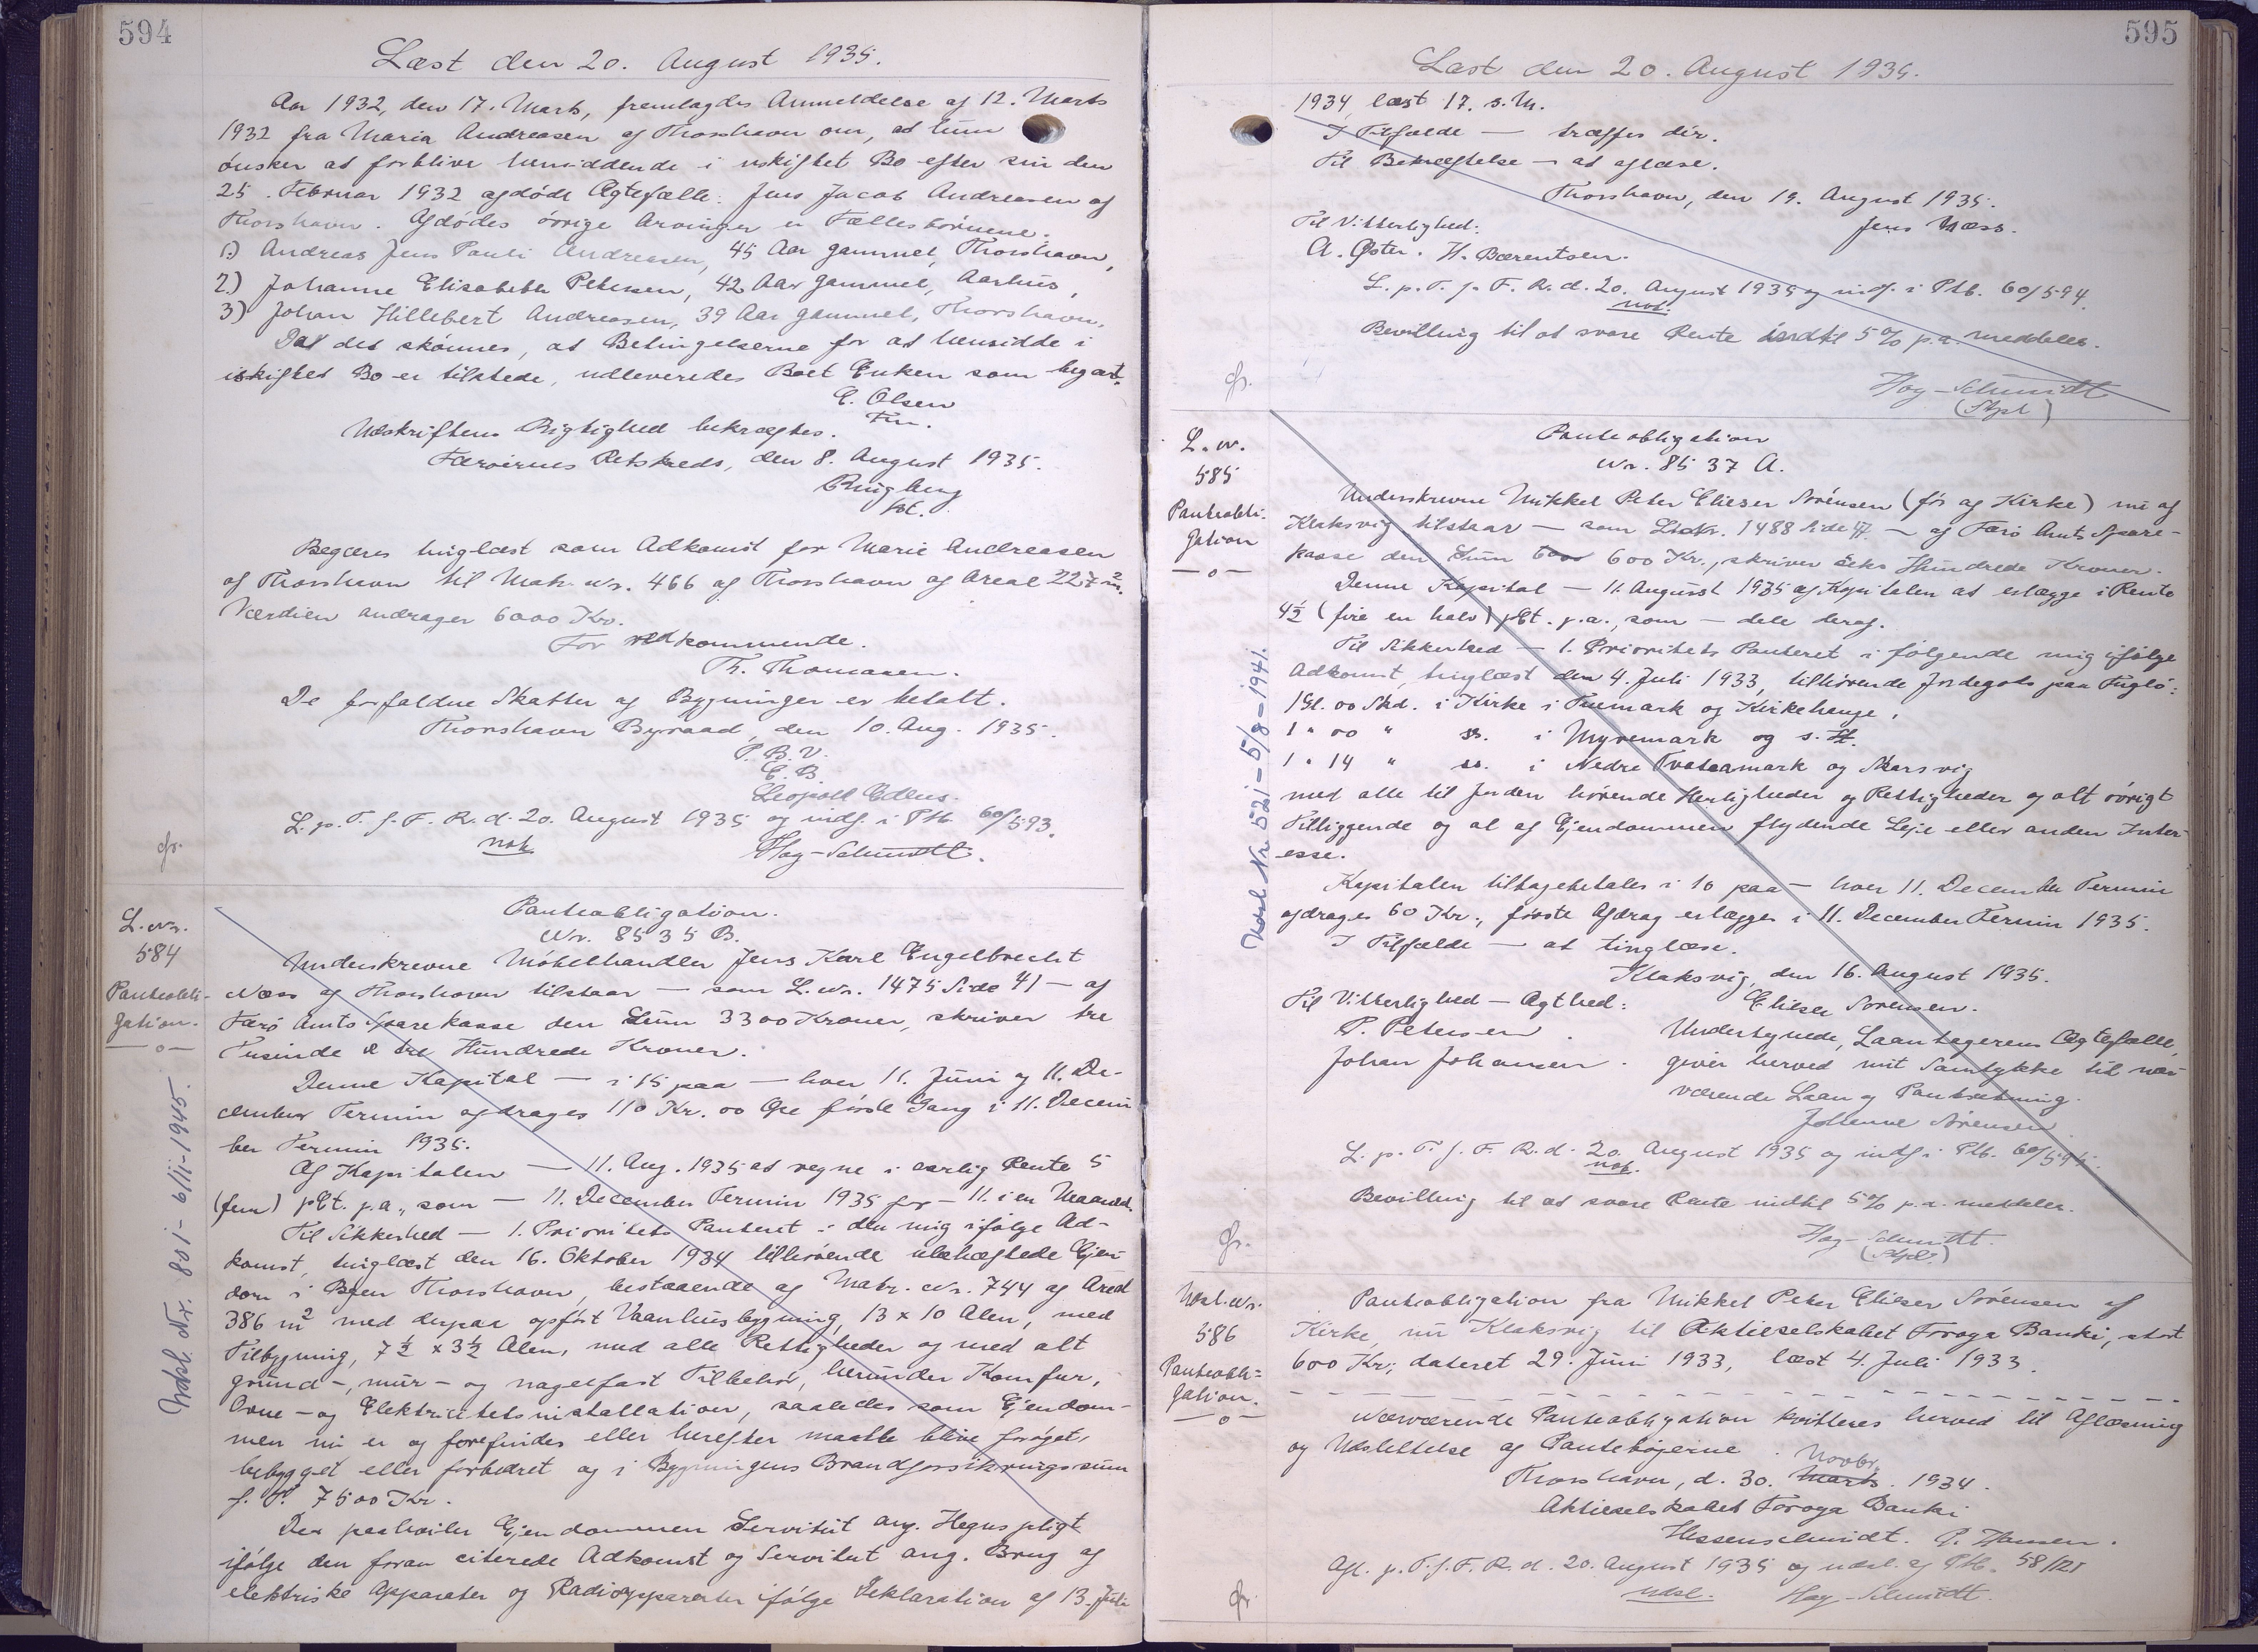 594
Læst den 20. August 1935.
Aar 1932, den 17. Marts, fremlagdes Anmeldelse af 12. Marts
1932 fra Maria Andreasen af Thorshavn om, at hun
ønsker at forblive hensiddende i uskiftet Bo efter sin den
25. Februar 1932 afdøde Ægtefælle: Jens Jacob Andreasen af
Thorshavn. Afdødes øvrige Arvinger er Fællesbørnene.
1.) Andreas Jens Pauli Andreasen, 45 Aar gammel, Thorshavn,
2.) Johanne Elisabeth Petersen, 42 Aar gammel, Aarhus,
3) Johan Hillebert Andreasen, 39 Aar gammel, Thorshavn.
Da det skønnes, at Betingelserne for at hensidde i
uskiftet Bo er tilstede, udleveredes Boet Enken som begært.
E. Olsen
Fm.
Udskriftens Rigtighed bekræftes.
Færøernes Retskreds, den 8. August 1935.
Ringberg
fst.
Begæres tinglæst som Adkomst for Marie Andreasen
af Thorshavn til Matr. Nr. 466 af Thorshavn af Areal 227 m².
Værdien andrager 6000 Kr.
For vedkommende.
Th. Thomasen.
De forfaldne Skatter af Bygninger er betalt.
Thorshavn Byraad, den 10. Aug. 1935.
P. B. V.
E. B.
Leopold
L. p. T. f. F. R. d. 20. August 1935 og indf. i Ptb. 60/593.
not.
Hay-Schmidt.
gr.
L. Nr.
584
Panteobli-
gation.
—o—
Udsl. Nr. 801 - 6/11-1945.
Panteobligation.
Nr. 8535 B.
Underskrevne Møbelhandler Jens Karl Engelbrecht
Næss af Thorshavn tilstaar — som L. Nr. 1475 Side 41 — af
Færø Amts Sparekasse den Sum 3300 Kroner, skriver tre
Tusinde & tre Hundrede Kroner.
Denne Kapital — i 15 paa — hver 11. Juni og 11. De-
cember Termin afdrages 110 Kr. 00 Øre første Gang i 11. Decem-
ber Termin 1935.
Af Kapitalen — 11. Aug. 1935 at regne i aarlig Rente 5
(fem) pCt. p.a., som — 11. December Termin 1935 for — 11. i en Maaned.
Til Sikkerhed — 1. Prioritets Panteret i den mig ifølge Ad-
komst, tinglæst den 16. Oktober 1934 tilhørende ubehæftede Ejen-
dom i Byen Thorshavn, bestaaende af Matr. Nr. 744 af Areal
386 m² med derpaa opført Vaanhusbygning, 13 x 10 Alen, med
Tilbygning, 7½ x 3½ Alen, med alle Rettigheder og med alt
grund-, mur- og nagelfast Tilbehør, herunder Komfur,
Ovne- og Elektricitetsinstallation, saaledes som Ejendom-
men nu er og forefindes eller herefter maatte blive forøget,
bebygget eller forbedret og i Bygningens Brandforsikringssum
f. T. 7500 Kr.
Der paahviler Ejendommen Servitut ang. Hegnspligt
ifølge den foran citerede Adkomst og Servitut ang. Brug af
elektriske Apparater og Radioapparater ifølge Deklaration af 13. Juli
595
Læst den 20. August 1935.
1934, læst 17. s. M.
I Tilfælde — træffes dér.
Til Bekræftelse — at aflæse.
Thorshavn, den 19. August 1935.
Til Vitterlighed:
Jens Næss.
A. Øster. H. Bærentsen.
L. p. T. f. F. R. d. 20. August 1935 og indf. i Ptb. 60/594.
not.
Bevilling til at svare Rente indtil 5% p.a. meddeles.
Hay-Schmidt
(Stpl)
gr.
L. Nr.
585
Panteobli-
gation
—o—
Udsl. Nr. 521 - 5/8-1941.
Panteobligation
Nr. 8537 A.
Underskrevne Mikkel Peter Elieser Sørensen (før af Kirke) nu af
Klaksvig tilstaar — som L. Nr. 1488 Side 47. — af Færø Amts Spare-
kasse den Sum 600 600 Kr., skriver Seks Hundrede Kroner.
Denne Kapital — 11. August 1935 af Kapitalen at erlægge i Rente
4½ (fire en halv) pCt. p.a., som — dele deraf.
Til Sikkerhed — 1. Prioritets Panteret i følgende mig ifølge
Adkomst, tinglæst den 4. Juli 1933, tilhørende Jordegods paa Fuglø:
1 Gl. 00 Skd. i Kirke i Tunmark og Kirkehauge,
1 " 00 " sr. i Myremark og s. St.
1 " 14 " sr. i Nedre Tvataamark og Skarsvig
med alle til Jorden hørende Herligheder og Rettigheder og alt øvrigt
Tilliggende og al af Ejendommen flydende Leje eller anden Inter-
esse.
Kapitalen tilbagebetales i 10 paa — hver 11. December Termin
afdrages 60 Kr., første Afdrag erlægges i 11. December Termin 1935.
I Tilfælde — at tinglæse.
Klaksvig, den 16. August 1935.
Til Vitterlighed — Agthed:
Elieser Sørensen.
P. Petersen.
Johan Johansen.
Undertegnede, Laantagerens Ægtefælle,
giver herved mit Samtykke til nær-
værende Laan og Pantsætning.
Johanne Sørensen.
L. p. T. f. F. R. d. 20. August 1935 og indf. i Ptb. 60/595.
not.
Bevilling til at svare Rente indtil 5% p.a. meddeles.
Hay-Schmidt.
(Stpl.)
gr.
Udsl. Nr.
586
Panteobli-
gation.
—o—
Panteobligation fra Mikkel Peter Elieser Sørensen af
Kirke, nu Klaksvig til Aktieselskabet Føroya Banki, stort
600 Kr., dateret 29. Juni 1933, læst 4. Juli 1933.
Nærværende Panteobligation kvitteres herved til Aflæsning
og Udslettelse af Pantebøgerne.
Thorshavn, d. 30. Marts Novbr. 1934.
Aktieselskabet Føroya Banki
Hessenschmidt. P. Hansen.
Afl. p. T. f. F. R. d. 20. August 1935 og udsl. af Ptb. 58/121
udsl.
Hay-Schmidt.
gr.